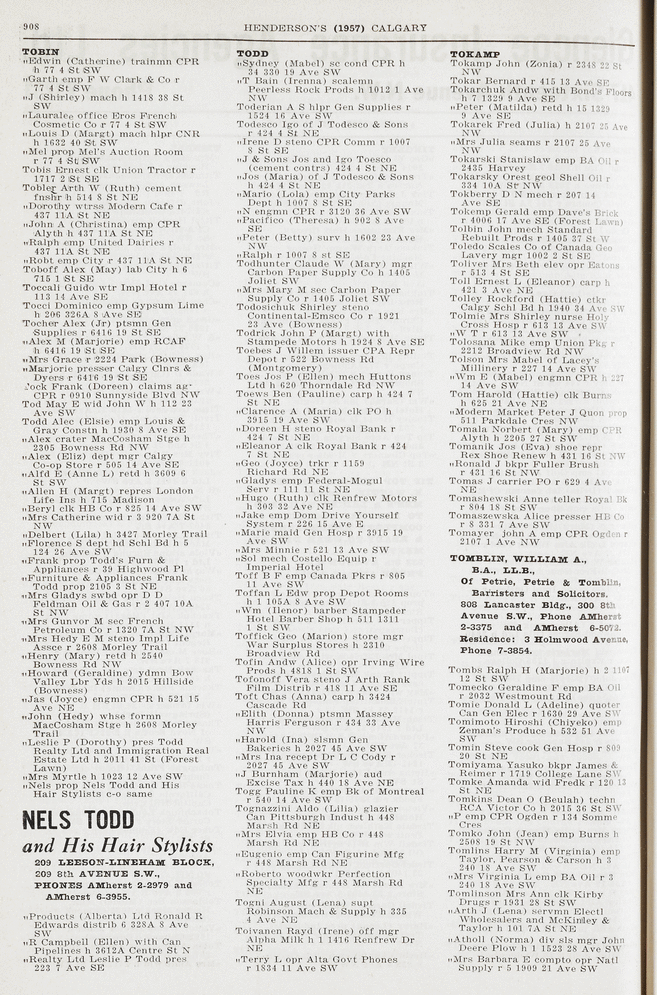 908
HENDERSON'S (1957) CALGARY
TOBIN
„Edwin (Catherine) trainmn CPR
h 77 4 St SW
„Garth emp F W Clark & Co r
77 4 St SW
„J (Shirley) mach h 1418 38 St
SW
„Lauralie office Eros French
Cosmetic Co r 77 4 St SW
„Louis D (Margt) mach hlpr CNR
h 1632 40 St SW
„Mel prop Mel's Auction Room
r 77 4 St SW
Tobis Ernest clk Union Tractor r
1717 2 St SE
Tobler Arth W (Ruth) cement
fnshr h 514 8 St NE
„Dorothy wtrss Modern Cafe r
437 11A St NE
„John A (Christina) emp CPR
Alyth h 437 11A St NE
„Ralph emp United Dairies r
437 11A St NE
„Robt emp City r 437 11A St NE
Toboff Alex (May) lab City h 6
715 1 St SE
Toccali Guido wtr Impl Hotel r
113 14 Ave SE
Tocci Dominico emp Gypsum Lime
h 206 326A 8 Ave SE
Tocher Alex (Jr) ptsmn Gen
Supplies r 6416 19 St SE
„Alex M (Marjorie) emp RCAF
h 6416 19 St SE
„Mrs Grace r 2224 Park (Bowness)
„Marjorie presser Calgy Clnrs &
Dyers r 6416 19 St SE
Tock Frank (Doreen) claims ag
CPR r 0910 Sunnyside Blvd NW
Tod May E wid John W h 112 23
Ave SW
Todd Alec (Elsie) emp Louis &
Gray Constn h 1930 8 Ave SE
„Alex crater MacCosham Stge h
2305 Bowness Rd NW
„Alex (Eliz) dept mgr Calgy
Co-op Store r 505 14 Ave SE
„Alfd E (Anne L) retd h 3609 6
St SW
„Allen H (Margt) repres London
Life Ins h 715 Madison
„Beryl clk HB Co r 825 14 Ave SW
„Mrs Catherine wid r 3 920 7A St
NW
„Delbert (Lila) h 3427 Morley Trail
„Florence S dept hd Schl Bd h 5
124 26 Ave SW
„Frank prop Todd's Furn &
Appliances r 39 Highwood Pl
„Furniture & Appliances Frank
Todd prop 2105 3 St NE
„Mrs Gladys swbd opr D D
Feldman Oil & Gas r 2 407 10A
St NW
„Mrs Gunvor M sec French
Petroleum Co r 1320 7A St NW
„Mrs Hedy E M steno Impl Life
Assce r 2608 Morley Trail
„Henry (Mary) retd h 2540
Bowness Rd NW
„Howard (Geraldine) ydmn Bow
Valley Lbr Yds h 2015 Hillside
(Bowness)
„Jas (Joyce) engmn CPR h 521 15
Ave NE
„John (Hedy) whse formn
MacCosham Stge h 2608 Morley
Trail
„Leslie P (Dorothy) pres Todd
Realty Ltd and Immigration Real
Estate Ltd h 2011 41 St (Forest
Lawn)
„Mrs Myrtle h 1023 12 Ave SW
„Nels prop Nels Todd and His
Hair Stylists c-o same
NELS TODD
and His Hair Stylists
209 LEESON-LINEHAM BLOCK,
209 8th AVENUE S.W.,
PHONES AMherst 2-2979 and
AMherst 6-3955.
„Products (Alberta) Ltd Ronald R
Edwards distrib 6 328A 8 Ave
SW
„R Campbell (Ellen) with Can
Pipelines h 3612A Centre St N
„Realty Ltd Leslie P Todd pres
223 7 Ave SE
TODD
„Sydney (Mabel) sc cond CPR h
34 330 19 Ave SW
„T Bain (Irenna) scalemn
Peerless Rock Prods h 1012 1 Ave
NW
Toderian A S hlpr Gen Supplies r
1524 16 Ave SW
Todesco Igo of J Todesco & Sons
r 424 4 St NE
„Irene D steno CPR Comm r 1007
8 St SE
„J & Sons Jos and Igo Toesco
(cement contrs) 424 4 St NE
„Jos (Maria) of J Todesco & Sons
h 424 4 St NE
„Mario (Lola) emp City Parks
Dept h 1007 8 St SE
„N engmn CPR r 3120 36 Ave SW
„Pacifico (Theresa) h 902 8 Ave
SE
„Peter (Betty) surv h 1602 23 Ave
NW
„Ralph r 1007 8 st SE
Todhunter Claude W (Mary) mgr
Carbon Paper Supply Co h 1405
Joliet SW
„Mrs Mary M sec Carbon Paper
Supply Co r 1405 Joliet SW
Todosichuk Shirley steno
Continental-Emsco Co r 1921
23 Ave (Bowness)
Todrick John P (Margt) with
Stampede Motors h 1924 8 Ave SE
Toebes J Willem issuer CPA Repr
Depot r 522 Bowness Rd
(Montgomery)
Toes Jos P (Ellen) mech Huttons
Ltd h 620 Thorndale Rd NW
Toews Ben (Pauline) carp h 424 7
St NE
„Clarence A (Maria) clk PO h
3915 19 Ave SW
„Doreen H steno Royal Bank r
424 7 St NE
„Eleanor A clk Royal Bank r 424
7 St NE
„Geo (Joyce) trkr r 1159
Richard Rd NE
„Gladys emp Federal-Mogul
Serv r 111 11 St NE
„Hugo (Ruth) clk Renfrew Motors
h 303 32 Ave NE
„Jake emp Dom Drive Yourself
System r 226 15 Ave E
„Marie maid Gen Hosp r 3915 19
Ave SW
„Mrs Minnie r 521 13 Ave SW
„Sol mech Costello Equip r
Imperial Hotel
Toff B F emp Canada Pkrs r 805
11 Ave SW
Toffan L Edw prop Depot Rooms
h 1 105A 8 Ave SW
„Wm (Ilenor) barber Stampeder
Hotel Barber Shop h 511 1311
1 St SW
Toffick Geo (Marion) store mgr
War Surplus Stores h 2310
Broadview Rd
Tofin Andw (Alice) opr Irving Wire
Prods h 4818 1 St SW
Tofonoff Vera steno J Arth Rank
Film Distrib r 418 11 Ave SE
Toft Chas (Anna) carp h 3424
Cascade Rd
„Elith (Donna) ptsmn Massey
Harris Ferguson r 434 33 Ave
NW
„Harold (Ina) slsmn Gen
Bakeries h 2027 45 Ave SW
„Mrs Ina recept Dr L C Cody r
2027 45 Ave SW
„J Burnham (Marjorie) aud
Excise Tax h 440 18 Ave NE
Togg Pauline K emp Bk of Montreal
r 540 14 Ave SW
Tognazzini Aldo (Lilia) glazier
Can Pittsburgh Indust h 448
Marsh Rd NE
„Mrs Elvia emp HB Co r 448
Marsh Rd NE
„Eugenio emp Can Figurine Mfg
r 448 Marsh Rd NE
„Roberto woodwkr Perfection
Specialty Mfg r 448 Marsh Rd
NE
Togni August (Lena) supt
Robinson Mach & Supply h 335
4 Ave NE
Toivanen Rayd (Irene) off mgr
Alpha Milk h 1 1416 Renfrew Dr
NE
„Terry L opr Alta Govt Phones
r 1834 11 Ave SW
TOKAMP
Tokamp John (Zonia) r 2348 22 St
NW
Tokar Bernard r 415 13 Ave SE
Tokarchuk Andw with Bond's Floors
h 7 1329 9 Ave SE
„Peter (Matilda) retd h 15 1329
9 Ave SE
Tokarek Fred (Julia) h 2107 25 Ave
NW
„Mrs Julia seams r 2107 25 Ave
NW
Tokarski Stanislaw emp BA Oil r
2435 Harvey
Tokarsky Orest geol Shell Oil r
334 10A St NW
Tokberry D N mech r 207 14
Ave SE
Tokemp Gerald emp Dave's Brick
r 4006 17 Ave SE (Forest Lawn)
Tolbin John mech Standard
Rebuilt Prods r 1405 37 St W
Toledo Scales Co of Canada Geo
Lavery mgr 1002 2 St SE
Toliver Mrs Beth elev opr Eatons
r 513 4 St SE
Toll Ernest L (Eleanor) carp h
421 3 Ave NE
Tolley Rockford (Hattie) ctkr
Calgy Schl Bd h 1940 34 Ave SW
Tolmie Mrs Shirley nurse Holy
Cross Hosp r 613 13 Ave SW
„W T r 613 13 Ave SW
Tolosana Mike emp Union Pkg r
2212 Broadview Rd NW
Tolson Mrs Mabel of Lacey's
Millinery r 227 14 Ave SW
„Wm E (Mabel) engmn CPR h 227
14 Ave SW
Tom Harold (Hattie) clk Burns
h 625 21 Ave NE
„Modern Market Peter J Quon prop
511 Parkdale Cres NW
Tomala Norbert (Mary) emp CPR
Alyth h 2205 27 St SW
Tomanik Jos (Eva) shoe repr
Rex Shoe Renew h 431 16 St NW
„Ronald J bkpr Fuller Brush
r 431 16 St NW
Tomas J carrier PO r 629 4 Ave
NE
Tomashewski Anne teller Royal Bk
r 804 18 St SW
Tomaszewska Alice presser HB Co
r 8 331 7 Ave SW
Tomayer john A emp CPR Ogden r
2107 1 Ave NW
TOMBLIN, WILLIAM A.,
B.A., LL.B.,
Of Petrie, Petrie & Tomblin,
Barristers and Solicitors.
808 Lancaster Bldg., 300 8th
Avenue S.W., Phone AMherst
2-3375 and AMherst 6-5072.
Residence: 3 Holmwood Avenue,
Phone 7-3854.
Tombs Ralph H (Marjorie) h 2 1107
12 St SW
Tomecko Geraldine F emp BA Oil
r 2032 Westmount Rd
Tomie Donald L (Adeline) quoter
Can Gen Elec r 1630 29 Ave SW
Tomimoto Hiroshi (Chiyeko) emp
Zeman's Produce h 532 51 Ave
SW
Tomin Steve cook Gen Hosp r 809
20 St NE
Tomiyama Yasuko bkpr James &
Reimer r 1719 College Lane SW
Tomke Amanda wid Fredk r 120 13
St NE
Tomkins Dean O (Beulah) techn
RCA Victor Co h 2015 36 St SW
„P emp CPR Ogden r 134 Somme
Cres
Tomko John (Jean) emp Burns h
2508 19 St NW
Tomlins Harry M (Virginia) emp
Taylor, Pearson & Carson h 3
240 18 Ave SW
„Mrs Virginia L emp BA Oil r 3
240 18 Ave SW
Tomlinson Mrs Ann clk Kirby
Drugs r 1931 28 St SW
„Arth J (Lena) servmn Electl
Wholesalers and McKinley &
Taylor h 101 7A St NE
„Atholl (Norma) div sls mgr John
Deere Plow h 1 1528 23 Ave SW
„Mrs Barbara E compto opr Natl
Supply r 5 1909 21 Ave SW